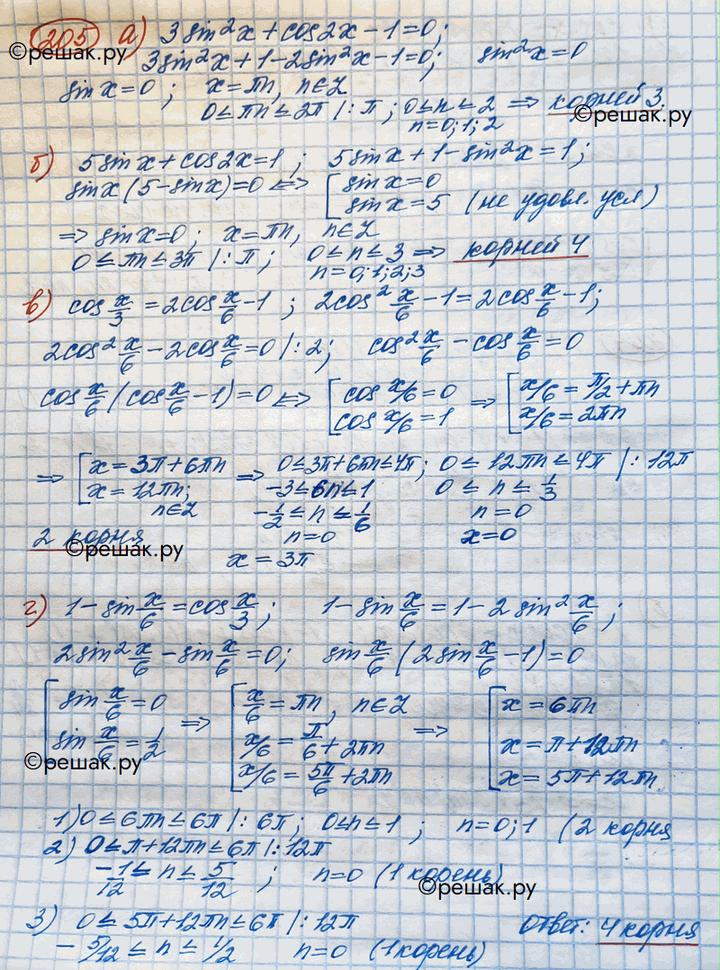 205 а) 3sin²x + cos2x − 1 = 0;
©решак.ру
3sin²x + 1 − 2sin²x − 1 = 0; sin²x = 0
sinx = 0; x = πn, n∈Z
0 ≤ πn ≤ 2π |:π; 0 ≤ n ≤ 2 ⇒ корней 3.
n = 0; 1; 2
©решак.ру
б) 5sinx + cos2x = 1; 5sinx + 1 − sin²x = 1;
sinx(5 − sinx) = 0 ⇔ [ sinx = 0
sinx = 5 (не удовл. усл)
⇒ sinx = 0; x = πn, n∈Z
0 ≤ πn ≤ 3π |:π; 0 ≤ n ≤ 3 ⇒ корней 4
n = 0; 1; 2; 3
в) cos x/3 = 2cos x/6 − 1; 2cos² x/6 − 1 = 2cos x/6 − 1;
2cos² x/6 − 2cos x/6 = 0 |:2; cos² x/6 − cos x/6 = 0
cos x/6 (cos x/6 − 1) = 0 ⇔ [ cos x/6 = 0 ⇒ [ x/6 = π/2 + πn
cos x/6 = 1 x/6 = 2πn
⇒ [ x = 3π + 6πn ⇒ 0 ≤ 3π + 6πn ≤ 4π; 0 ≤ 12πn ≤ 4π |:12π
x = 12πn; −3 ≤ 6n ≤ 1 0 ≤ n ≤ 1/3
n∈Z −1/2 ≤ n ≤ 1/6 n = 0
2 корня n = 0 x = 0
©решак.ру x = 3π
г) 1 − sin x/6 = cos x/3; 1 − sin x/6 = 1 − 2sin² x/6;
2sin² x/6 − sin x/6 = 0; sin x/6 (2sin x/6 − 1) = 0
[ sin x/6 = 0 ⇒ [ x/6 = πn, n∈Z ⇒ [ x = 6πn
sin x/6 = 1/2 x/6 = π/6 + 2πn x = π + 12πn
©решак.ру x/6 = 5π/6 + 2πn x = 5π + 12πn
1) 0 ≤ 6πn ≤ 6π |:6π; 0 ≤ n ≤ 1; n = 0; 1 (2 корня
2) 0 ≤ π + 12πn ≤ 6π |:12π
−1/12 ≤ n ≤ 5/12; n = 0 (1 корень)
©решак.ру
3) 0 ≤ 5π + 12πn ≤ 6π |:12π Ответ: 4 корня
−5/12 ≤ n ≤ 1/2 n = 0 (1 корень)